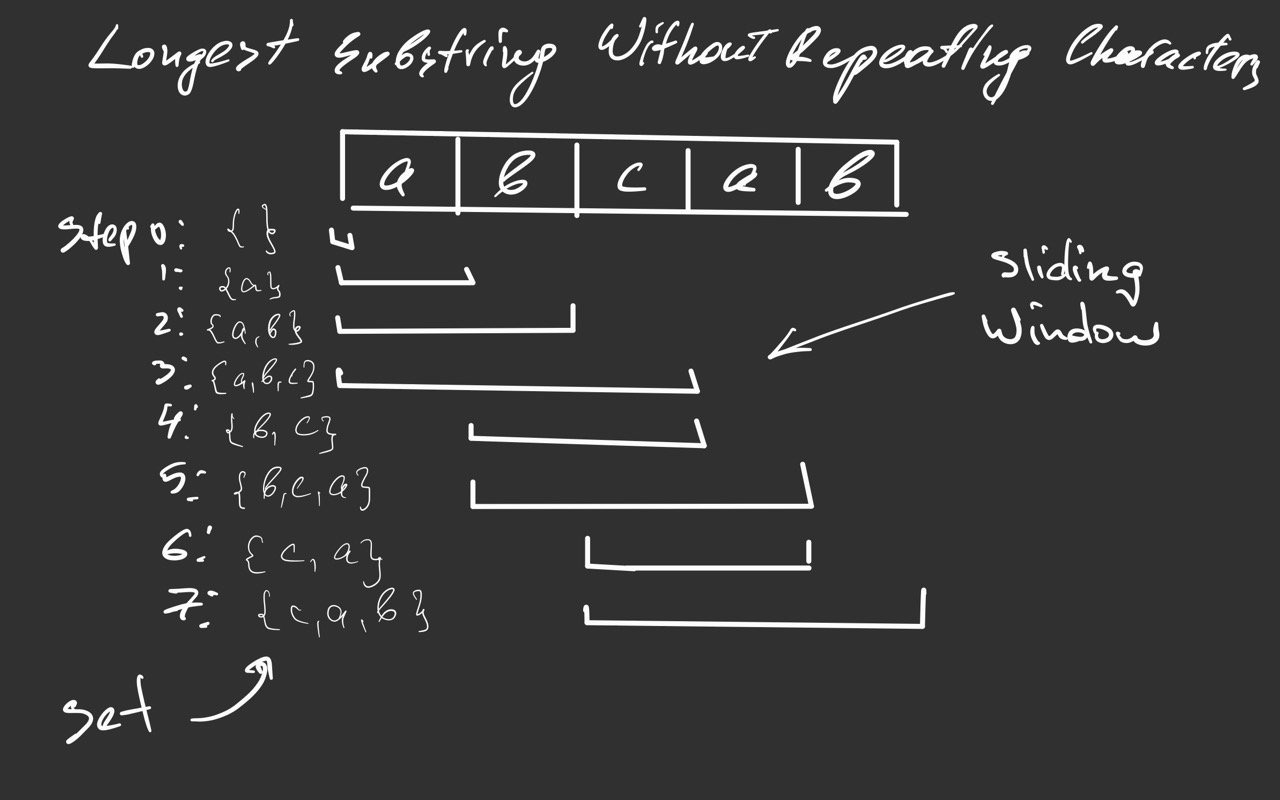 Longest Substring Without Repeating Characters
a b c a b
Step 0: { }
1: {a}
2: {a,b}
3: {a,b,c}
4: {b, c}
5: {b,c,a}
6: {c, a}
7: {c,a,b}
Sliding
Window
Set